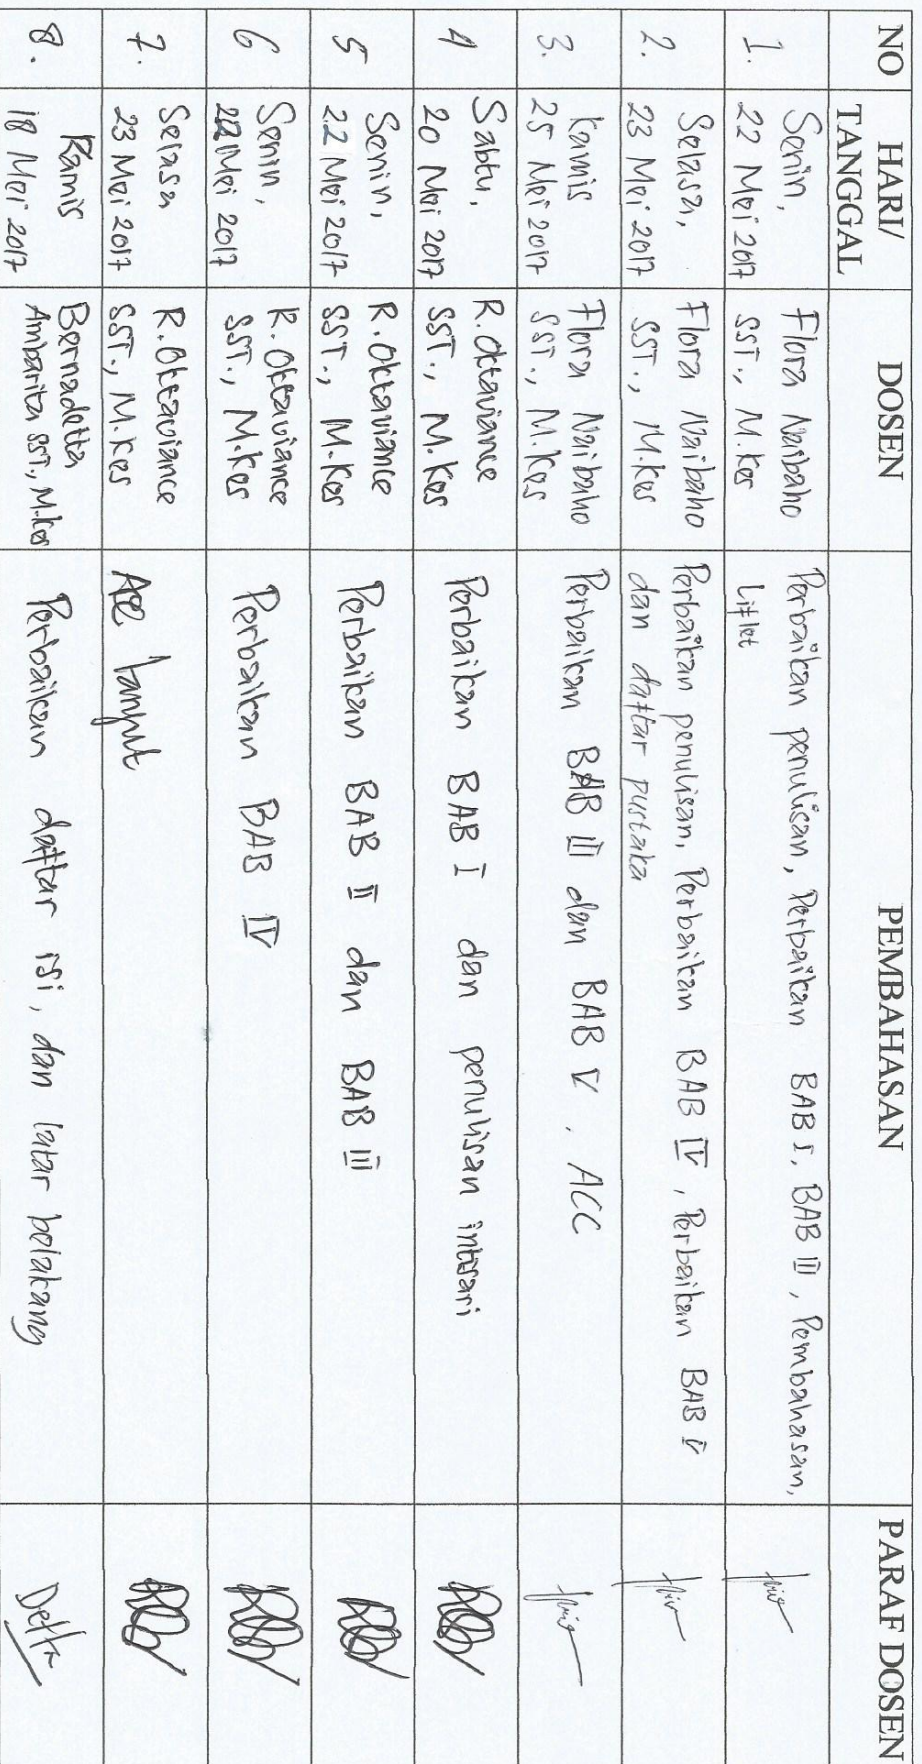 NO
HARI/
TANGGAL
DOSEN
PEMBAHASAN
PARAF DOSEN
1.
Senin,
22 Mei 2017
Flora Naibaho
SST., M.Kes
Perbaikan penulisan, Perbaikan BAB I, BAB III, Pembahasan,
Liflet
2.
Selasa,
23 Mei 2017
Flora Naibaho
SST., M.Kes
Perbaikan penulisan, Perbaikan BAB IV, Perbaikan BAB V
dan daftar pustaka
3.
Kamis
25 Mei 2017
Flora Naibaho
SST., M.Kes
Perbaikan BAB III dan BAB V. ACC
4
Sabtu,
20 Mei 2017
R. Oktaviance
SST., M.Kes
Perbaikan BAB I dan penulisan intisari
5
Senin,
22 Mei 2017
R. Oktaviance
SST., M.Kes
Perbaikan BAB II dan BAB III
6
Senin,
22 Mei 2017
R. Oktaviance
SST., M.Kes
Perbaikan BAB IV
7.
Selasa
23 Mei 2017
R. Oktaviance
SST., M.Kes
Acc
8.
Kamis
18 Mei 2017
Bernadetta
Ambarita SST., M.Kes
Perbaikan daftar isi, dan latar belakang
Detta